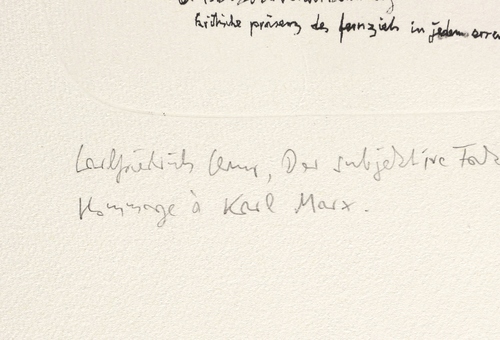 kritische präsenz des fernziels in jedem
Carlfriedrich Claus, Der subjektive
Hommage à Karl Marx.